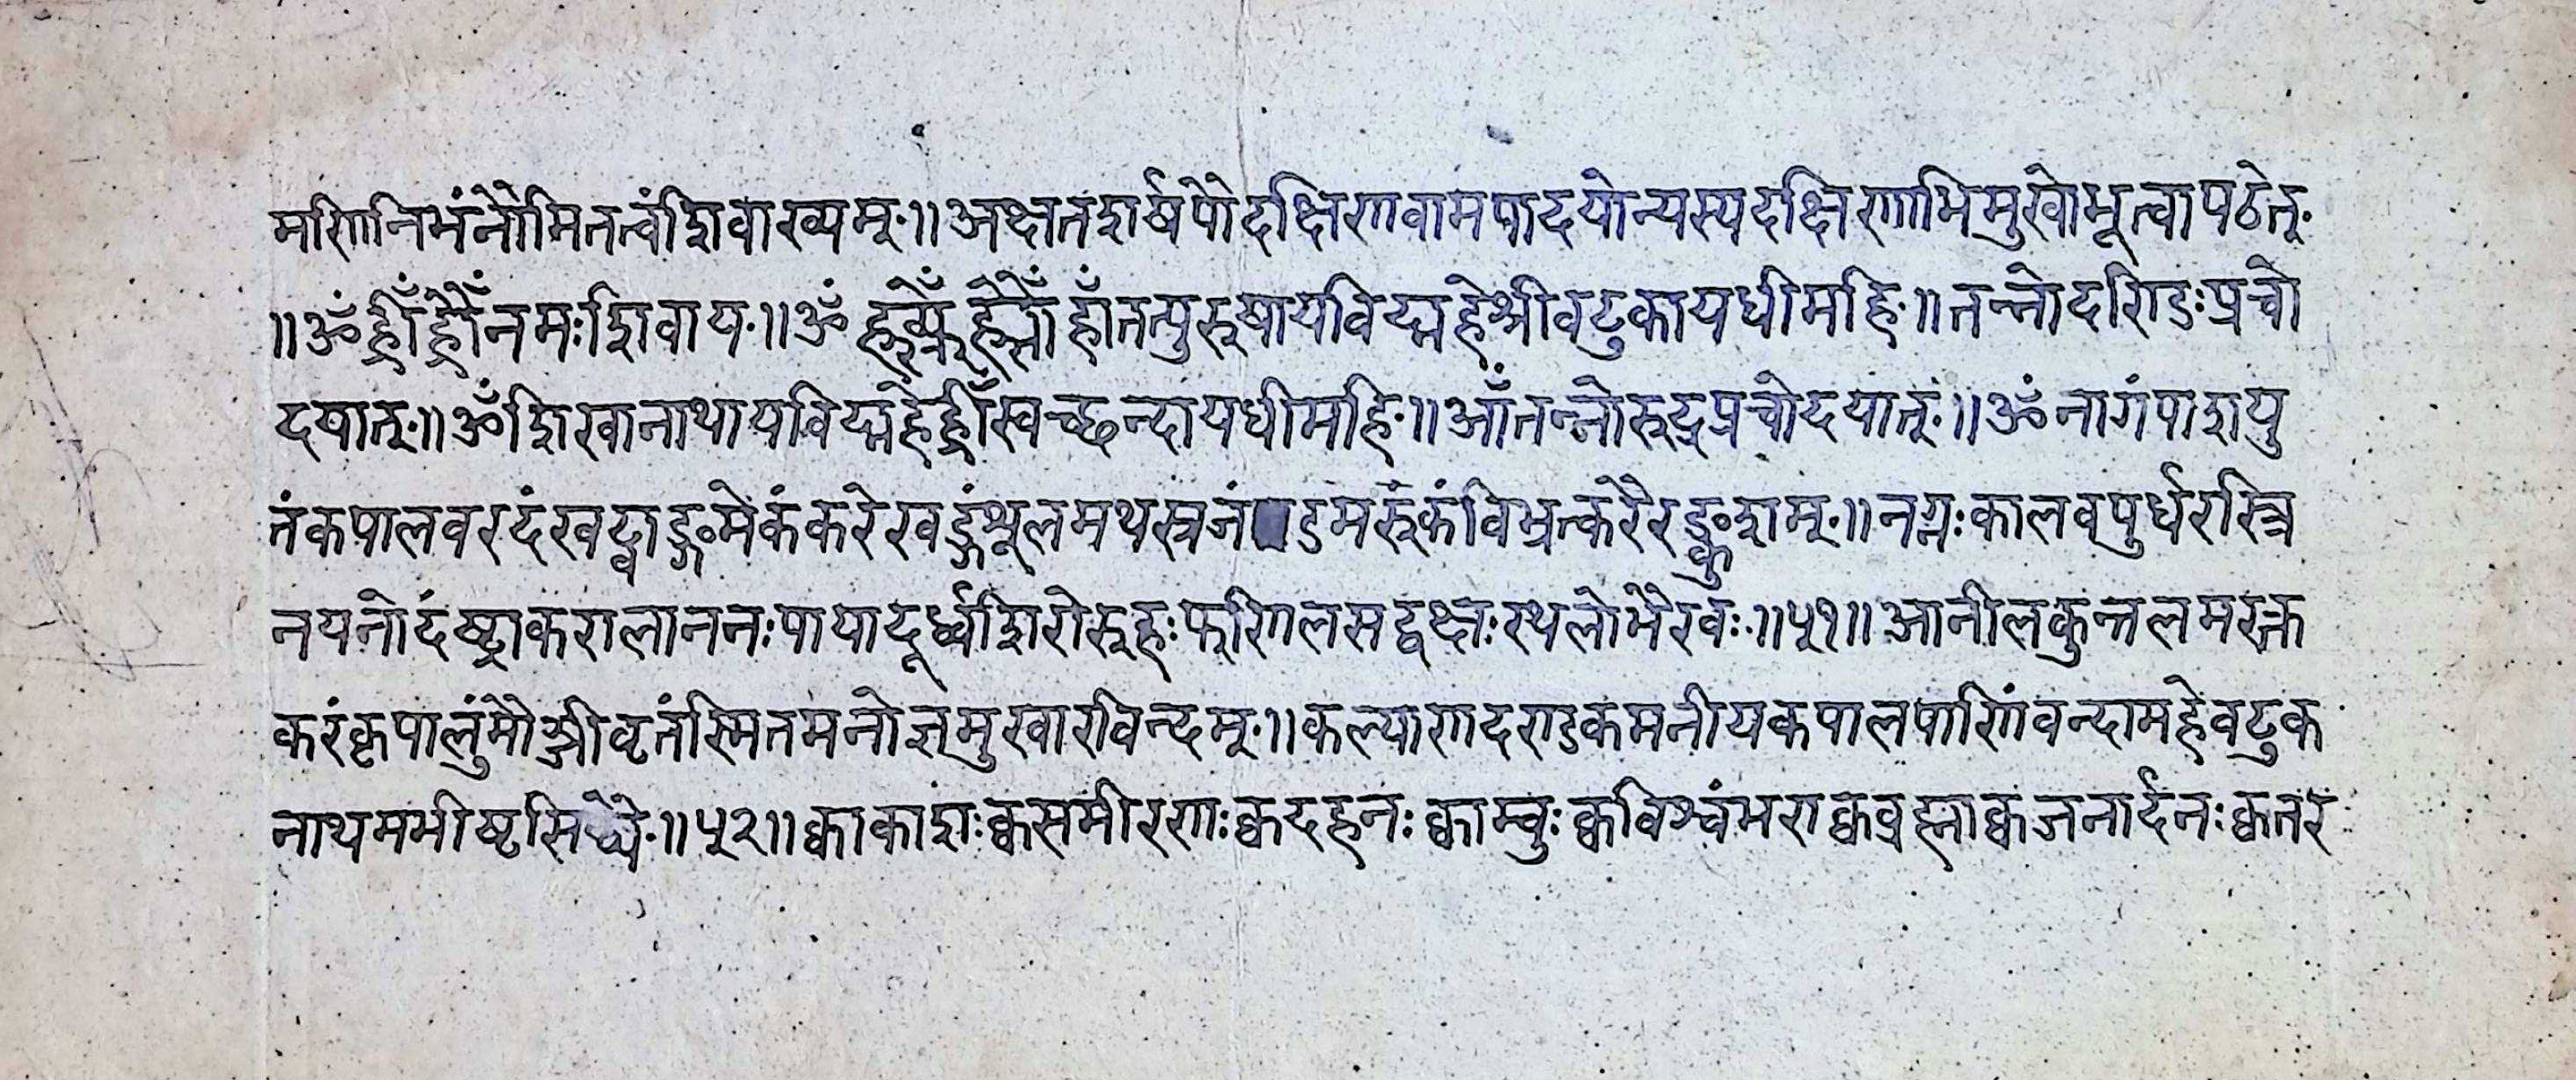 मणिनिभंनौमितत्वंशिवाख्यम्॥अक्षतशर्षपौदक्षिणवामपादयोन्यस्यदक्षिणाभिमुखोभूत्वापठेत्
॥ॐह्रीँह्रौँनमःशिवाय॥ॐ ह्राँतत्पुरुषायविद्महेश्रीवटुकायधीमहि॥तन्नोदण्डिःप्रचो
दयात्॥ॐशिखानाथायविद्महेह्रीँस्वच्छन्दायधीमहि॥आँतन्नोरुद्रप्रचोदयात्॥ॐनागंपाशयु
तंकपालवरदंखट्वाङ्गमेकंकरेखड्गंशूलमथस्रजं डमरुंकंविभ्रत्करैरङ्कुशम्॥नग्नःकालवपुर्धरस्त्रि
नयनोदंष्ट्राकरालाननःपायादूर्ध्वशिरोरुहःफणिलसद्वक्षःस्थलोभैरवः॥५१॥आनीलकुन्तलमरक्त
करंकृपालुंमौञ्जीवृतंस्मितमनोज्ञमुखारविन्दम्॥कल्याणदण्डकमनीयकपालपाणिंवन्दामहेवटुक
नाथमभीष्टसिद्ध्यै॥५२॥क्वाकाशःक्वसमीरणःक्वदहनःक्वाम्वुःक्वविश्वंभराक्वव्रह्माक्वजनार्दनःक्वतर